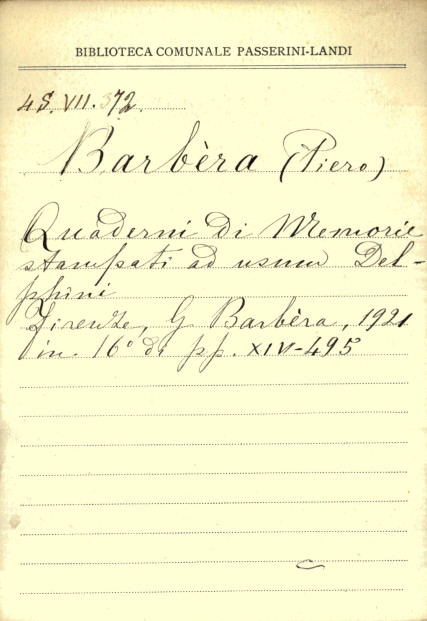 BIBLIOTECA COMUNALE PASSERINI-LANDI
4S. VII. 372.
Barbèra (Piero)
Quaderni di Memorie
stampati ad usum Del-
phini
Firenze, G Barbèra, 1921
in. 16° di pp. XIV-495